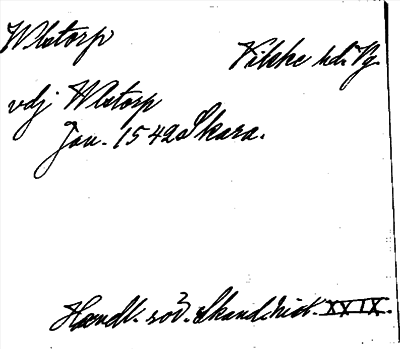 Wlstorp Vilske hd. Vg.
vdj Wlstorp
Jan. 1542 Skara.
Handl. rör. Skand. hist. XXIX.